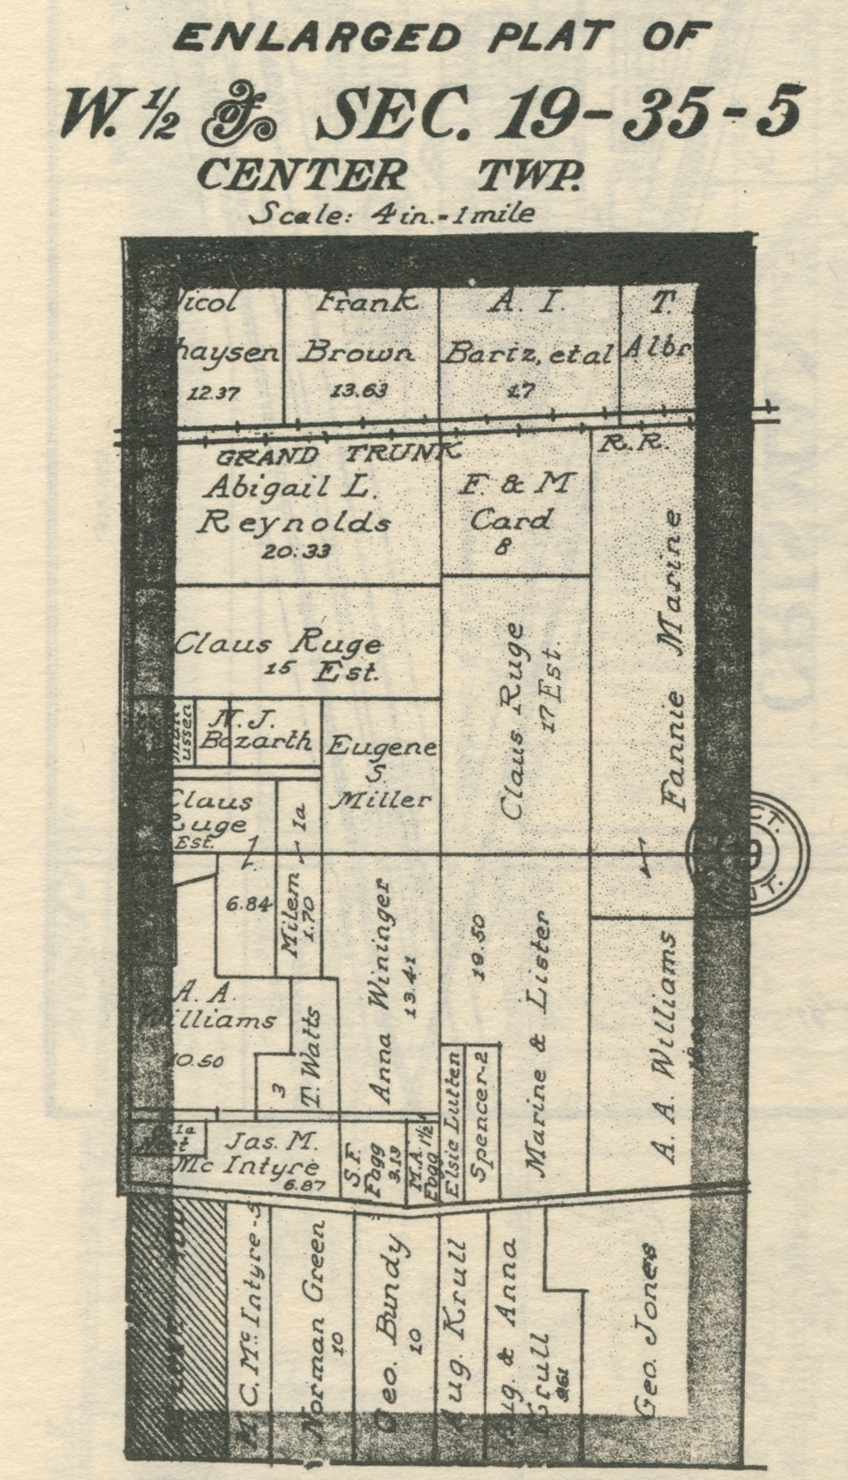 ENLARGED PLAT OF
W. ½ of SEC. 19-35-5
CENTER TWP.
Scale: 4 in.=1 mile
Frank
Brown
13.63
A. I.
Bartz, et al
17
T.
Albr
icol
haysen
12.37
GRAND TRUNK R.R.
Abigail L.
Reynolds
20.33
F. & M
Card
8
Fannie Marine
Claus Ruge
15 Est.
Claus Ruge
17 Est.
ussen
N. J.
Bozarth
Eugene
S.
Miller
Claus
Ruge
Est.
1a
6.84
Milem
1.70
Anna Wininger
13.41
19.50
Marine & Lister
A. A. Williams
A. A.
Williams
10.50
3
T. Watts
Elsie Lutten
Spencer-2
1a
Jas. M.
Mc Intyre
6.87
S.F.
Fogg
3.13
M.A. 1½
Fogg
C. Mc Intyre-5
Norman Green
10
Geo. Bundy
10
Aug. Krull
Aug. & Anna
Krull
Geo. Jones